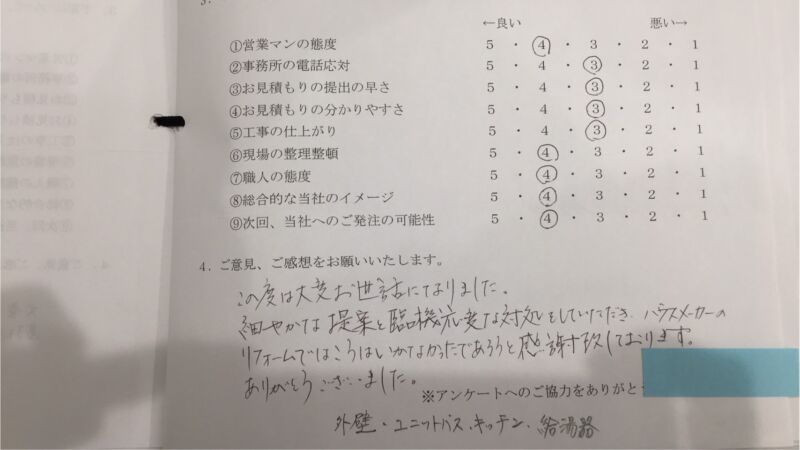 ←良い 悪い→
①営業マンの態度 5 ・ 4 ・ 3 ・ 2 ・ 1
②事務所の電話応対 5 ・ 4 ・ 3 ・ 2 ・ 1
③お見積もりの提出の早さ 5 ・ 4 ・ 3 ・ 2 ・ 1
④お見積もりの分かりやすさ 5 ・ 4 ・ 3 ・ 2 ・ 1
⑤工事の仕上がり 5 ・ 4 ・ 3 ・ 2 ・ 1
⑥現場の整理整頓 5 ・ 4 ・ 3 ・ 2 ・ 1
⑦職人の態度 5 ・ 4 ・ 3 ・ 2 ・ 1
⑧総合的な当社のイメージ 5 ・ 4 ・ 3 ・ 2 ・ 1
⑨次回、当社へのご発注の可能性 5 ・ 4 ・ 3 ・ 2 ・ 1
4．ご意見、ご感想をお願いいたします。
この度は大変お世話になりました。
細やかな提案と臨機応変な対処をしていただき、ハウスメーカーの
リフォームではこうはいかなかったであろうと感謝致しております。
ありがとうございました。
※アンケートへのご協力をありがと
外壁・ユニットバス、キッチン、給湯器